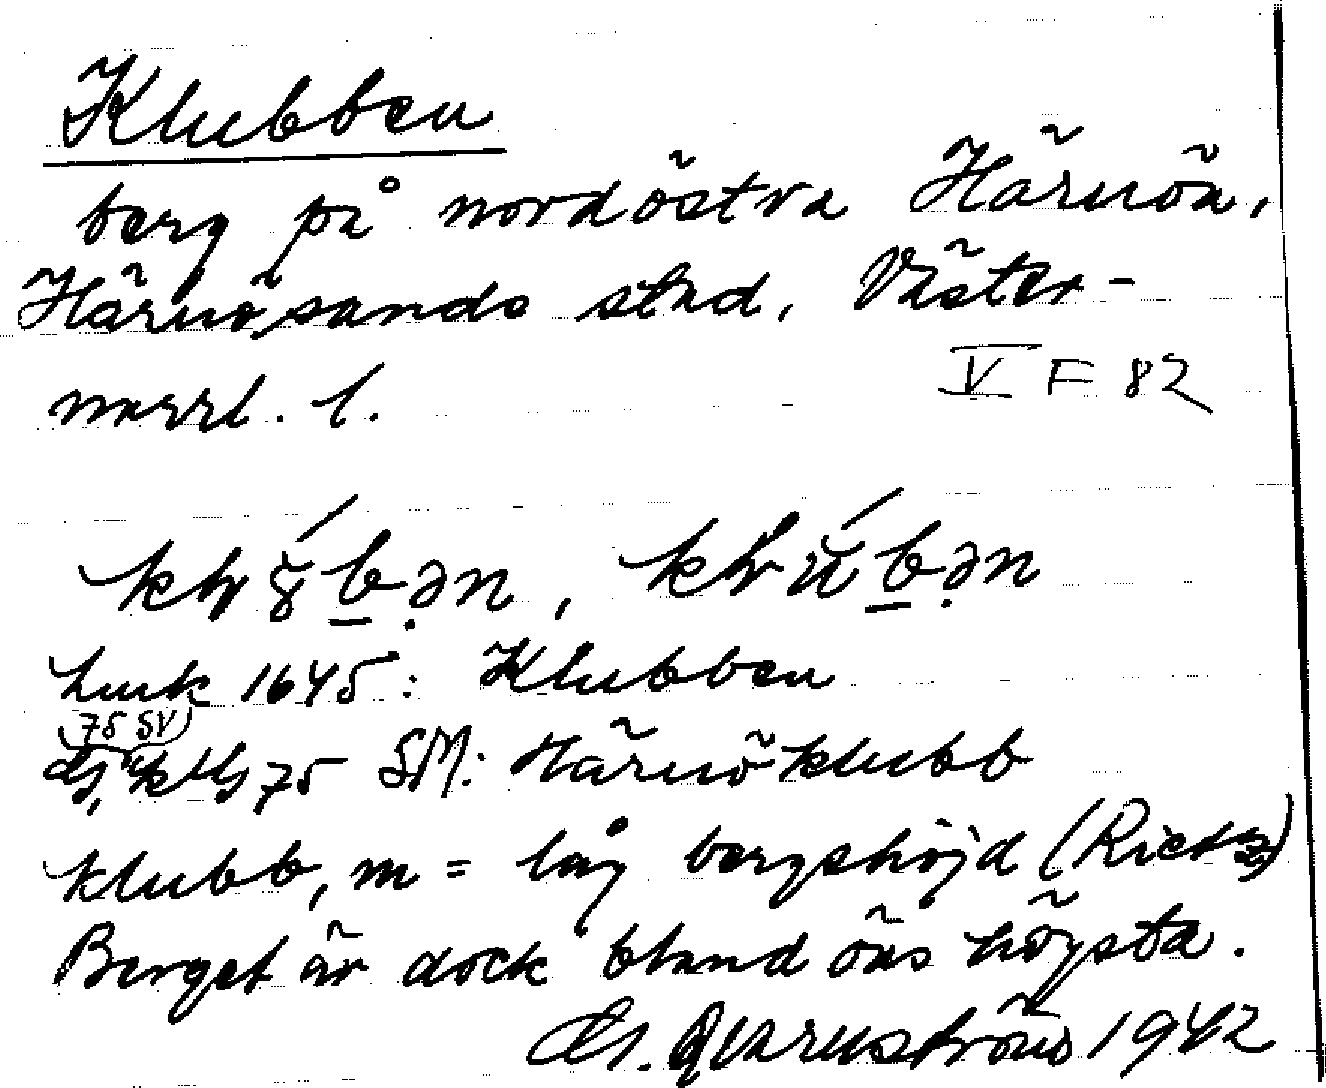 Klubben
berg på nordöstra Härnön,
Härnösands stad, Väster-
norrl. l.
V F 82
Lmk 1645: Klubben
75 SV
75 SM: Härnöklubb
klubb, m = låg bergshöjd (Rietz)
Berget är dock bland öns högsta.
Qvarnström 1942